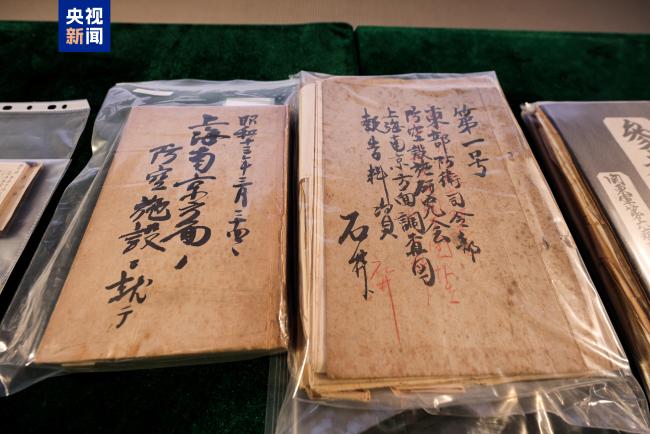 央视
新闻
昭和十三年二月
上海南京方面ノ
防空施設ニ就テ
第一号
東部防衛司令部
防空設施研究会
上海南京方面調査
報告
石井
石井
関東軍